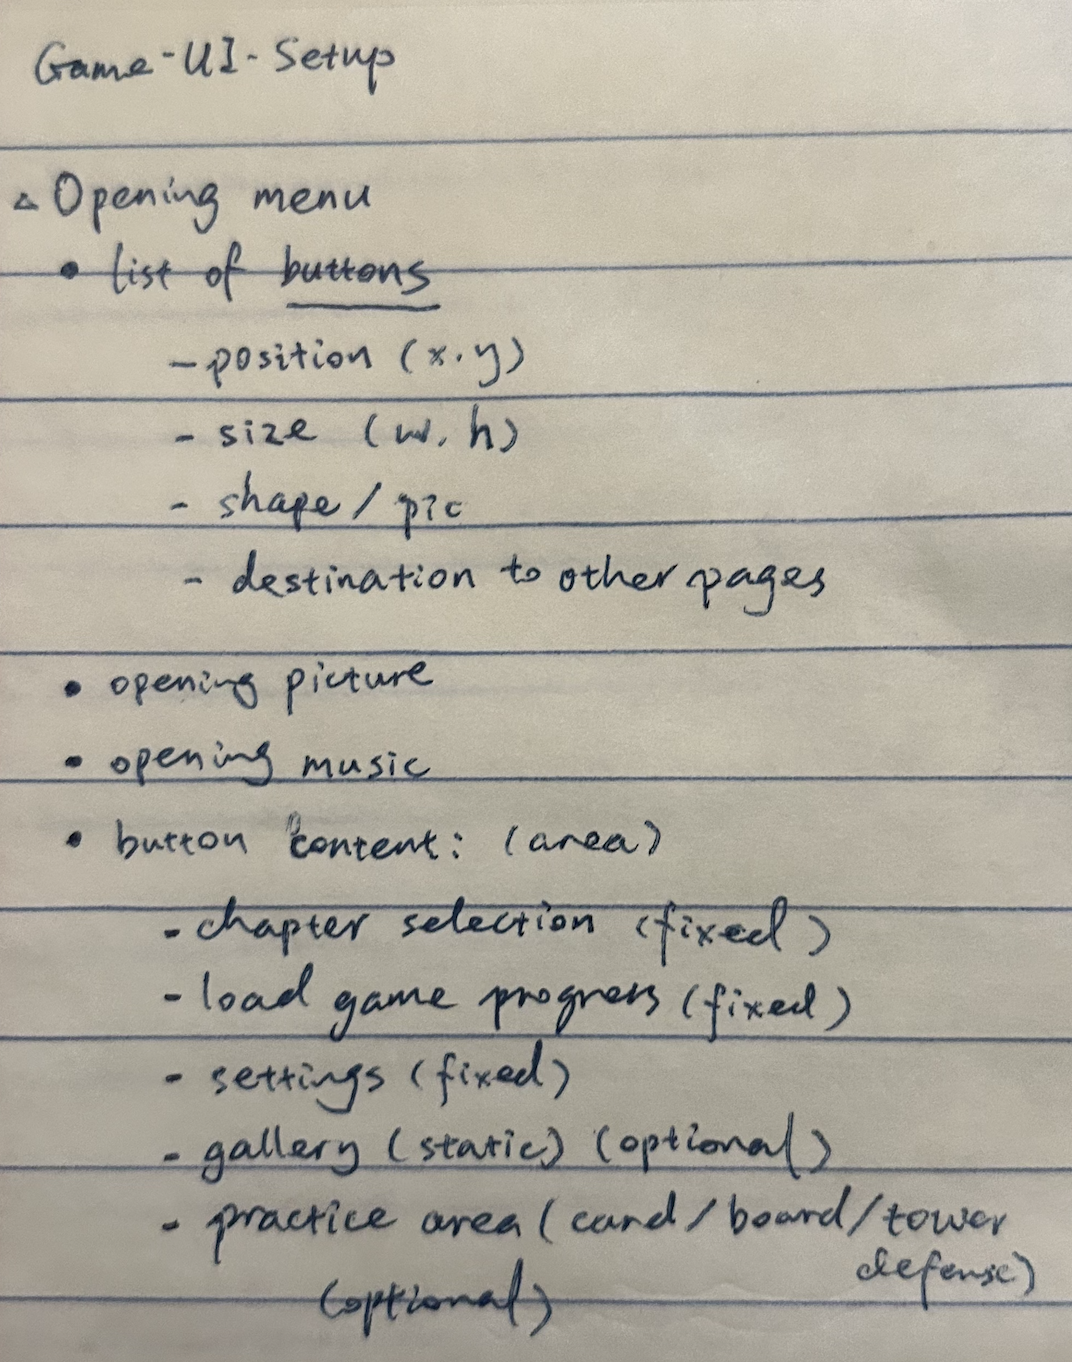 Game-UI-Setup
△ Opening menu
• list of buttons
- position (x.y)
- size (w.h)
- shape / pic
- destination to other pages
• opening picture
• opening music
• button content: (area)
- chapter selection (fixed)
- load game progress (fixed)
- settings (fixed)
- gallery (static) (optional)
- practice area (card/board/tower
defense)
(optional)